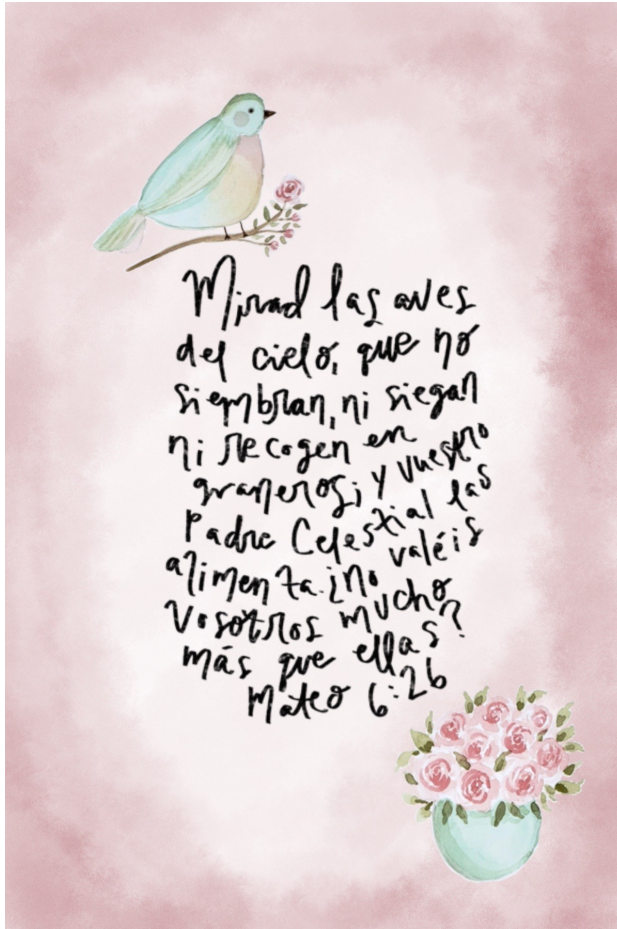 Mirad las aves
del cielo, que no
siembran, ni siegan
ni recogen en
graneros; y vuestro
Padre Celestial las
alimenta. ¿no valéis
vosotros mucho
más que ellas?
Mateo 6:26